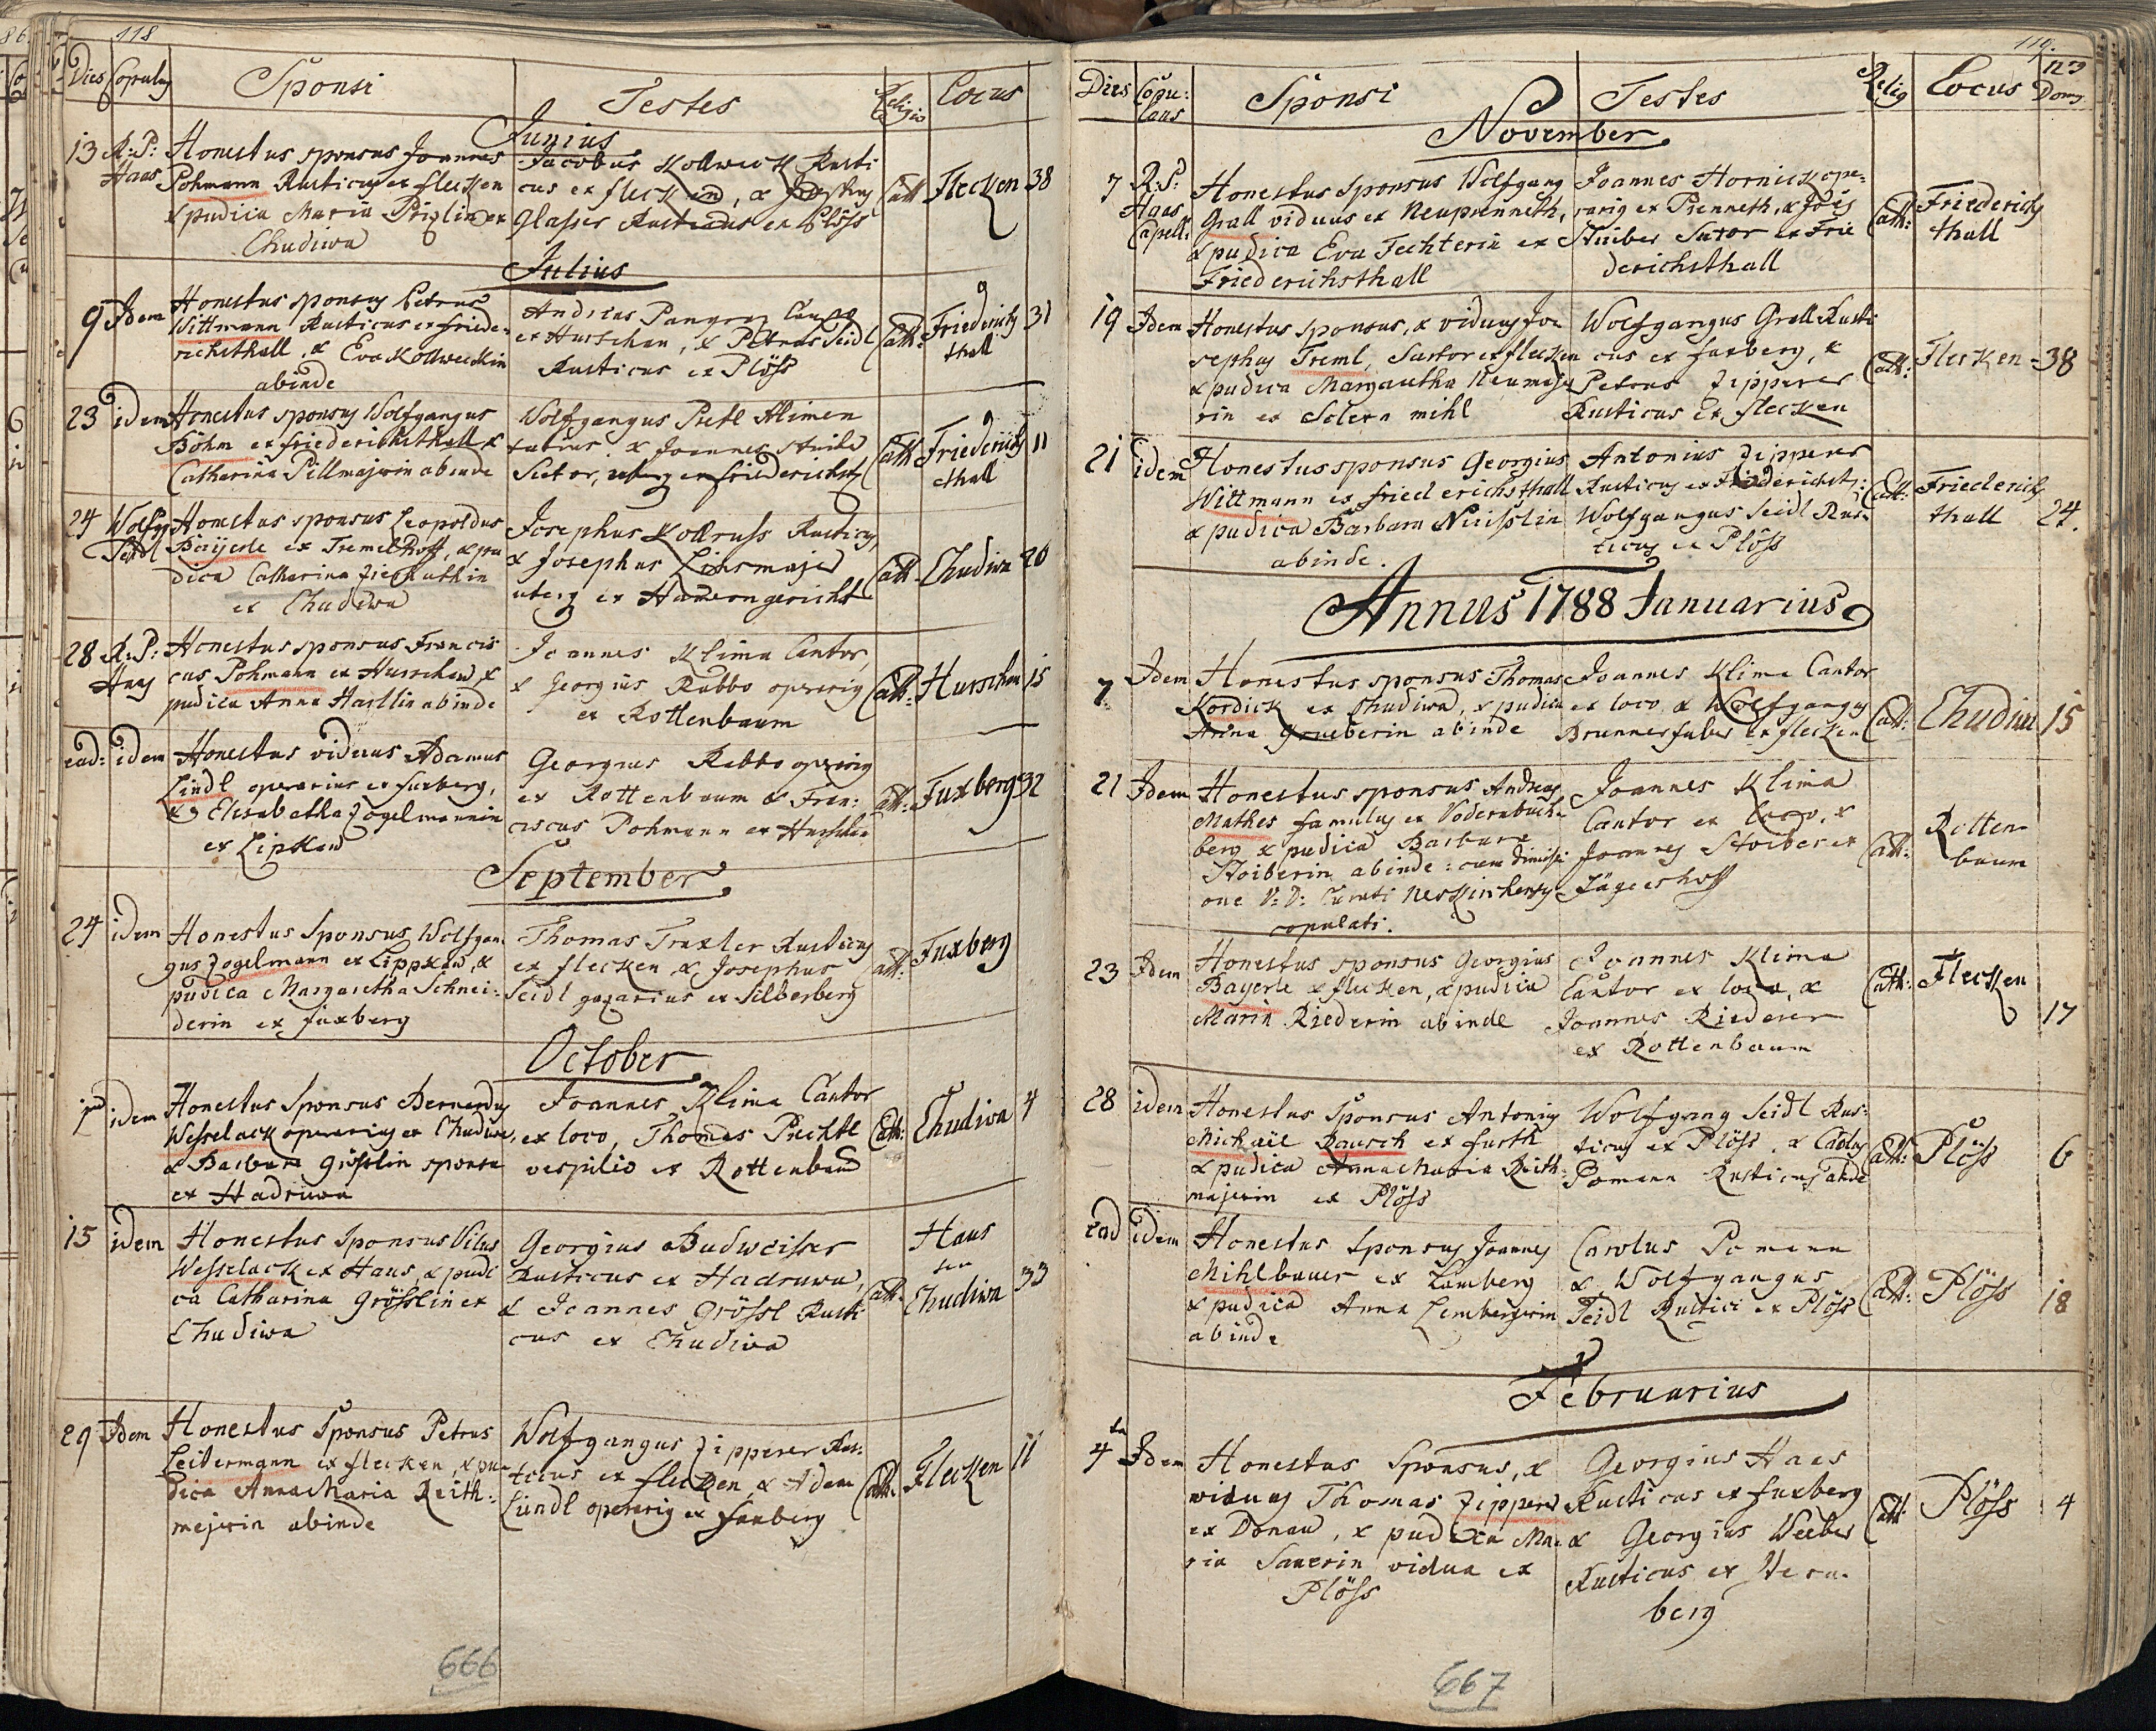 118
Dies Copulas Sponsi Testes Religio Locus
Junius
13 R: P: Haas
Honestus sponsus Joannes
Pohmann Rusticus ex flecken
& pudica Maria
Chudiwa
Jacobus Kollweck Rusti
cus ex flecken, &
Glaser Rusticus ex Plöss
Cath Flecken 38
Julius
9 Idem
Honestus sponsus Petrus
Wittmann Rusticus ex friede=
richsthall, & Eva Kollweckin
abinde
Andreas
ex Hurschen, & Petrus Seidl
Rusticus ex Plöss
Cath: Friederichs
thall
31
23 idem
Honestus sponsus Wolfgangus
Böhm ex friederichsthall &
Catharina Pillmajerin abinde
Wolfgangus Pretl Alimen
tatus & Joannes
Sutor, uterq ex friederichst
Cath Friederichs
thall
11
24 Wolfg
Seidl
Honestus sponsus Leopoldus
Baÿerle ex Tremelhoff, & pu
dica Catharina
ex Chudiwa
Josephus Kollruss Rusticus,
& Josephus Linsmajer
uterq ex Hadern gericht
Cath Chudiwa 20
28 R: P:
Haas
Honestus sponsus Francis
cus Pohmann ex Hurschen, &
pudica Anna Hasllin abinde
Joannes Klima Cantor,
& Georgius Rabbo operarig
ex Rottenbaum
Cath: Hurschen 15
ead: idem
Honestus viduus Adamus
Lindl operarius ex fuxberg,
& Elisabetha Zogelmannin
ex Lipkau
Georgius Rabbo operarig
ex Rottenbaum & Fran:
ciscus Pohmann ex Hurschen
Cath: Fuxberg 32
September
24 idem
Honestus Sponsus Wolfgan
gus Zogelmann ex Lippkau, &
pudica Margaretha Schnei:
derin ex fuxberg
Thomas Traxler Rusticus
ex flecken, & Josephus
Seidl gazarius ex Silberberg
Cath: Fuxberg
October
idem
Honestus Sponsus Bernardus
Wesselack operarius ex Chudiwa,
& Barbara Grösslin sponsa
ex Hadruwa
Joannes Klima Cantor
ex loco, Thomas Prechtl
vespilio ex Rottenbaum
Cath: Chudiwa 4
15 idem
Honestus Sponsus Vitus
Wesselack ex Haus, & pudi
ca Catharina Grösslin ex
Chudiwa
Georgius Budweisser
Rusticus ex Hadruwa,
& Joannes Grössl Rusti
cus ex Chudiwa
Cath:
Haus
seu
Chudiwa
33
29 Idem
Honestus Sponsus Petrus
Leitermann ex flecken, & pu=
dica Anna Maria Reith:
mejerin abinde
Wolfgangus Zipperer Rus:
ticus ex flecken, & Adam
Lindl operarig ex fuxberg
Cath: Flecken 11
666
119.
Dies Copu:
lans
Sponsi Testes Relig Locus
No
Domg
November
7 R: P:
Haas
Capell:
Honestus Sponsus Wolfgang
Grall viduus ex Neuprenneth,
& pudica Eva Fechterin ex
Friederichsthall
Joannes Hornick ope=
rarig ex Prenneth, & Jois
Stuiber Sutor ex Frie
derichsthall
Cath: Friederichs
thall
19 Idem
Honestus sponsus, & viduus Jo
sephus Treml, Sartor ex flecken
& pudica Margaretha Neumaje
rin ex Selern mihl
Wolfgangus Grall Rusti
cus ex fuxberg, &
Petrus Zipperer
Rusticus Ex flecken
Cath: Flecken - 38
21 idem
Honestus sponsus Georgius
Wittmann ex friederichsthall
& pudica Barbara Nüisslin
abinde.
Antonius Zipperer
Rusticus ex friederichst:
Wolfgangus Seidl Rus=
ticus ex Plöss
Cath: Friederichs
thall 24.
Annus 1788 Januarius
7 Idem
Honestus sponsus Thomas
Kordick ex Chudiwa, & pudica
Anna Grueberin abinde
Joannes Klima Cantor
ex loco & Wolfgangus
Brunner faber ex flecken
Cath: Chudiwa 15
21 Idem
Honestus sponsus Andreas
Mathes famulus ex Voderabuch
berg & pudica Barbara
Stoiberin abinde: cum dimissi
one V: D: Curati
copulati.
Joannes Klima
Cantor ex loco, &
Joannes Stoiber ex
Jägershoff
Cath: Rotten
baum
23 Idem
Honestus sponsus Georgius
Bayerle & flecken, & pudica
Maria Riederin abinde
Joannes Klima
Cantor ex loco, &
Joannes Riederer
ex Rottenbaum
Cath: Flecken
17
28 idem
Honestus Sponsus Antonig
Michaël Rausch ex furth
& pudica Anna Maria Reith:
majerin ex Plöss
Wolfgang Seidl Rus:
ticus ex Plöss, & Carolus
Pomann Rusticus abinde
Cath: Plöss 6
ead idem
Honestus Sponsus Joannes
Mihlbauer ex Lamberg
& pudica Anna Lembergerin
abinde
Carolus Pomann
& Wolfgangus
Seidl Rustici ex Plöss
Cath: Plöss 18
Februarius
4ta Idem
Honestus Sponsus, &
viduus Thomas Zipperer
ex Donau, & pudica Ma=
ria Sauerin vidua ex
Plöss
Georgius Haas
Rusticus ex fuxberg
& Georgius Weeber
Rusticus ex Stern=
berg
Cath Plöss 4
667